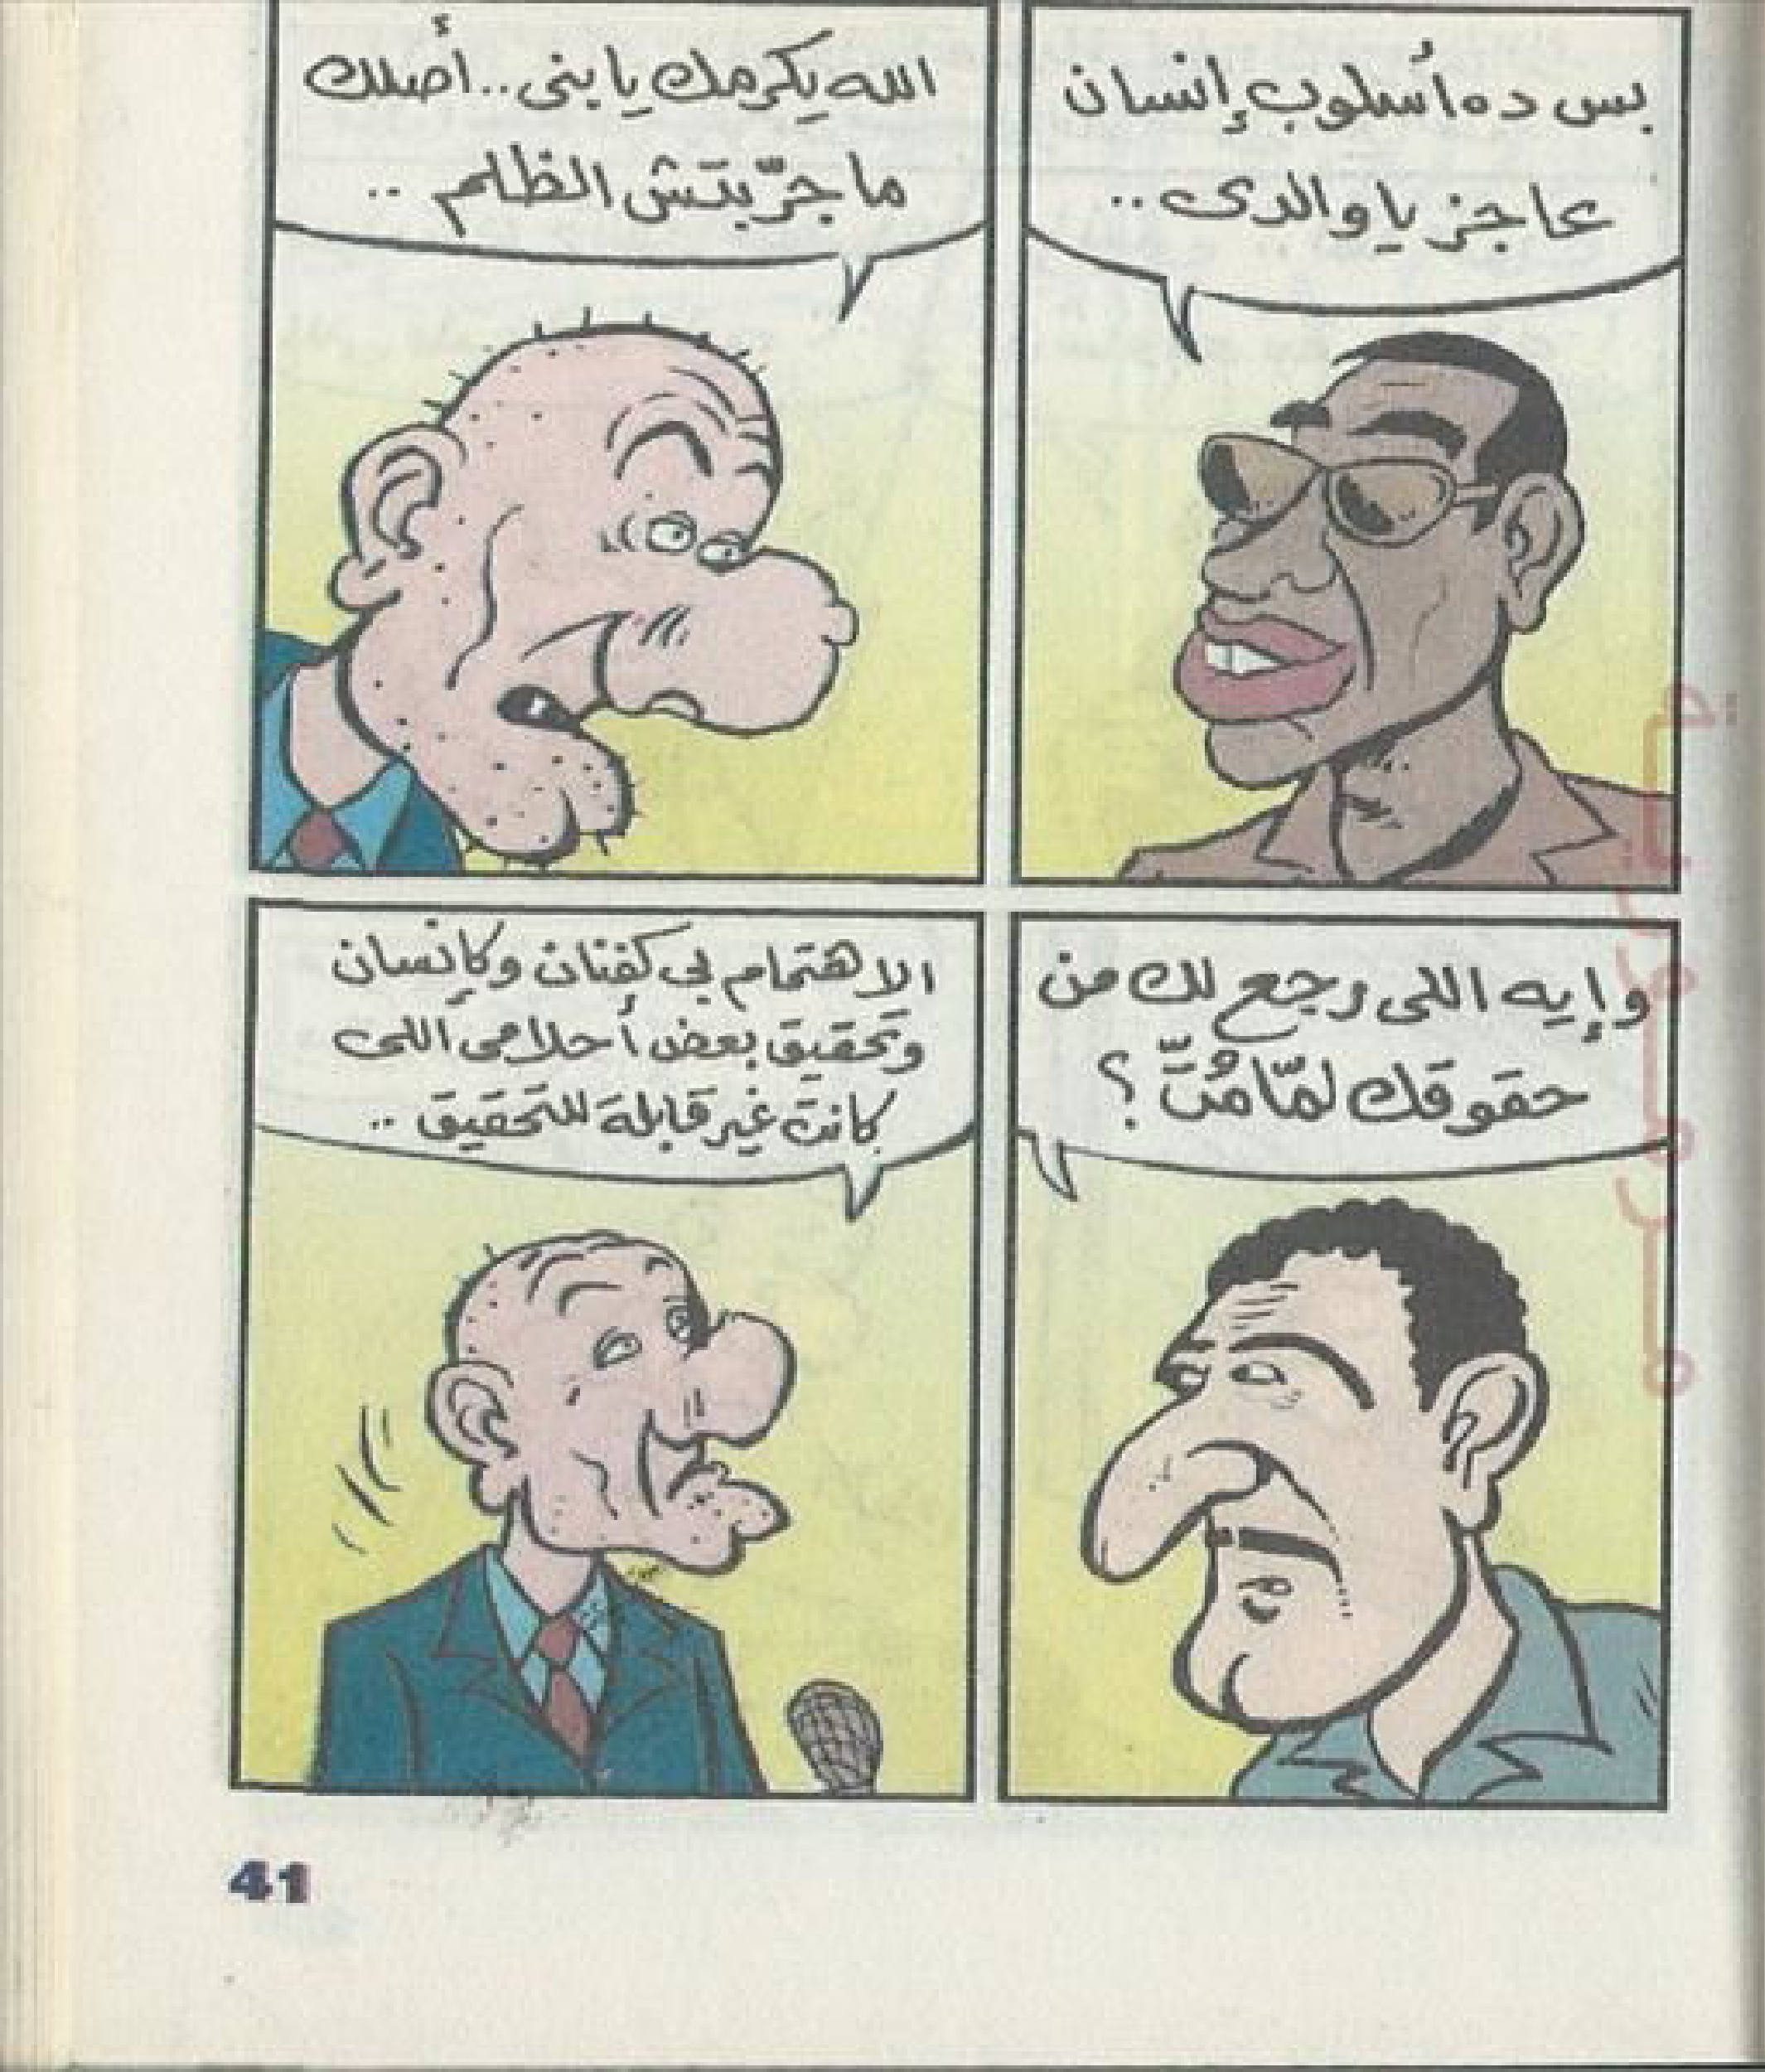 بس ده أسلوب إنسان
عاجز يا والدى ..
الله يكرمك يا بنى .. أصلك
ما جرّبتش الظلم ..
وإيه اللى رجع لك من
حقوقك لمّا مُتّ ؟
الاهتمام بى كفنان وكإنسان
وتحقيق بعض أحلامى اللى
كانت غير قابلة للتحقيق ..
41